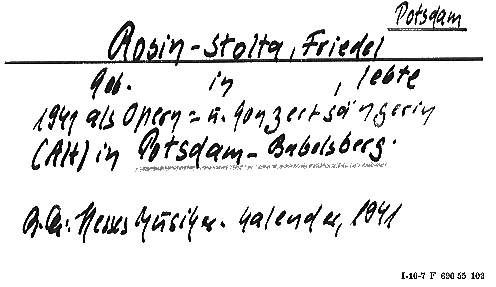 Potsdam
Rosin-Stolta, Friedel
geb. in , lebte
1941 als Opern- u. Konzertsängerin
(Alt) in Potsdam-Babelsberg.
Hesses Musiker-Kalender, 1941
I-10-7 F 690 55 102